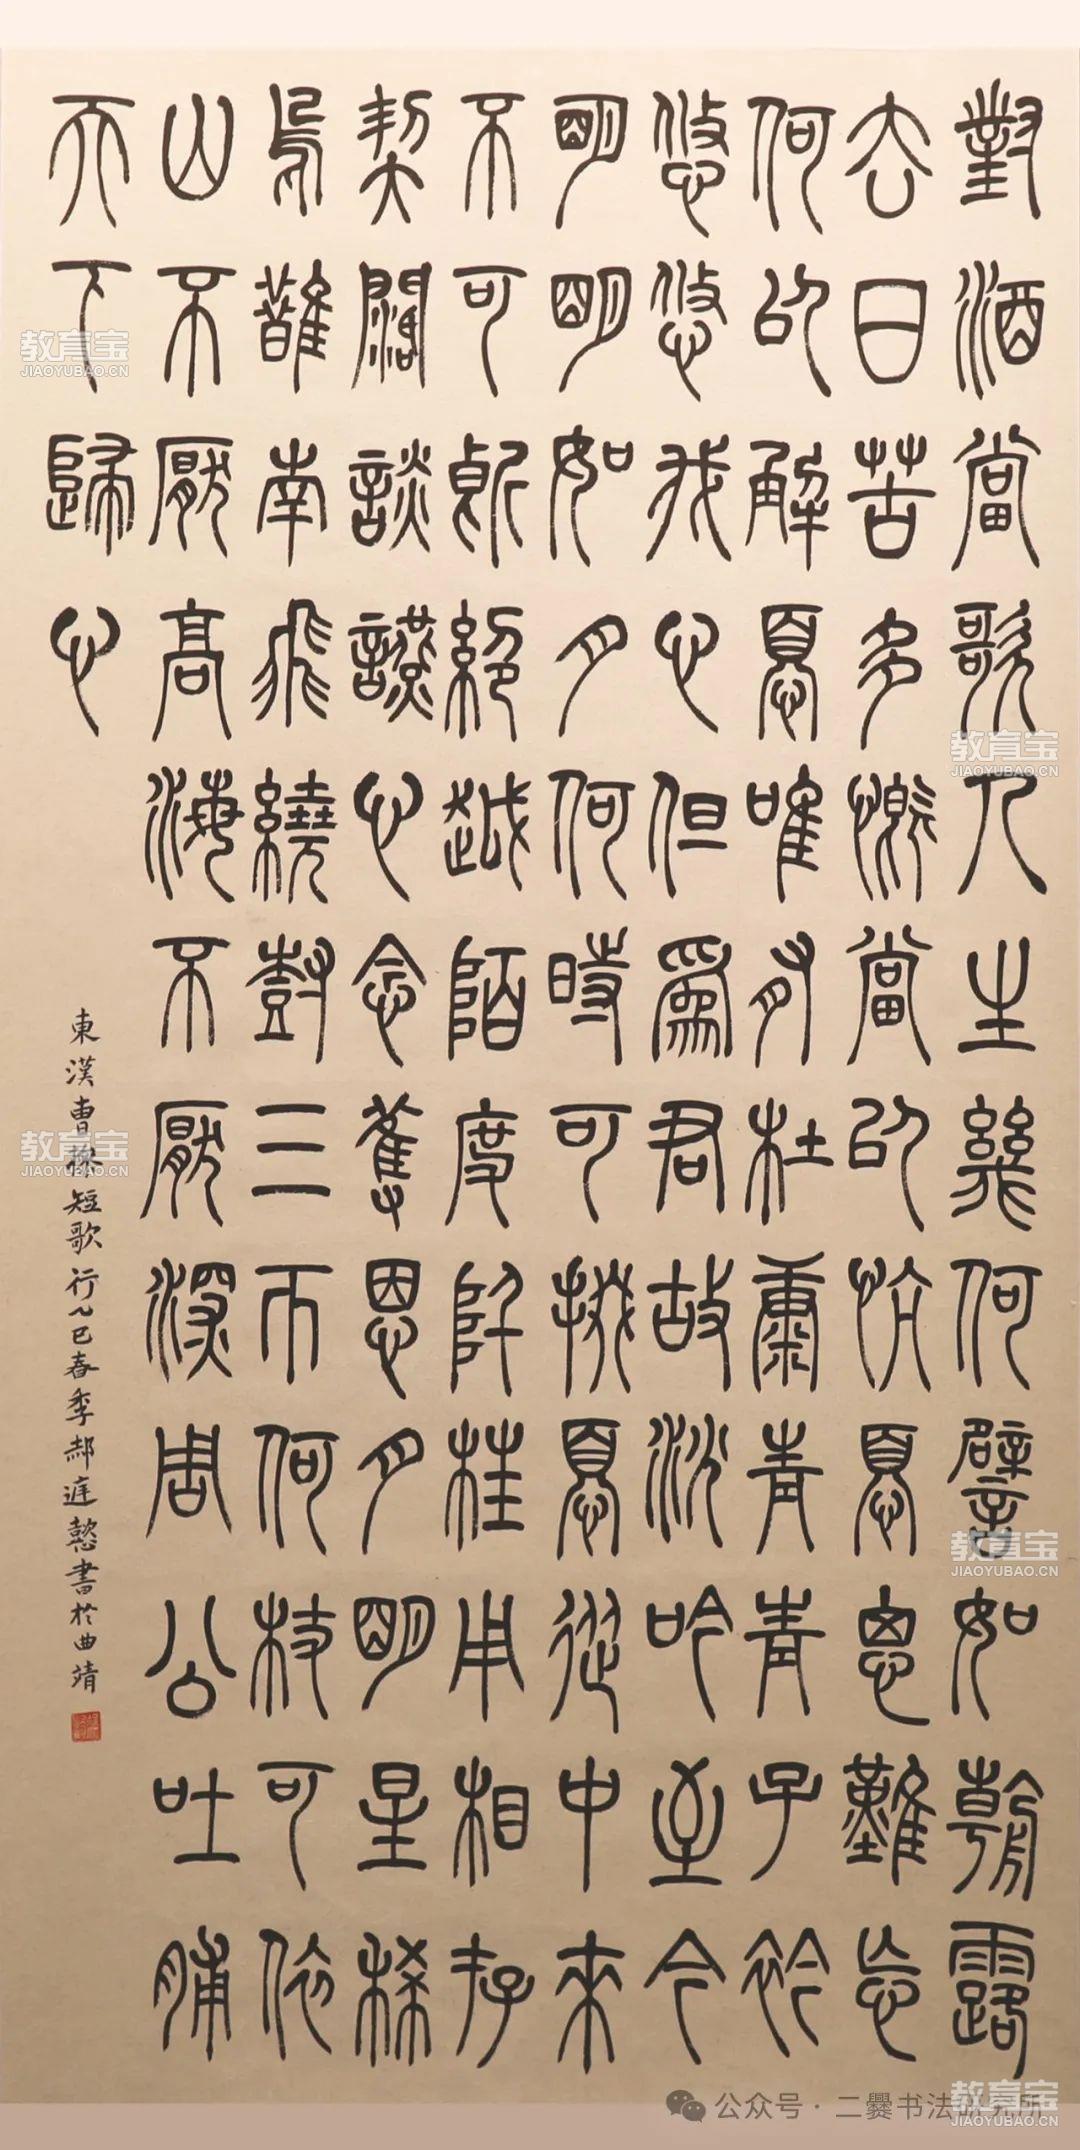 對酒當歌人生幾何譬如朝露
去日苦多慨當以忼憂思難忘
何以解憂唯有杜康青青子衿
悠悠我心但為君故沈吟至今
明明如月何時可掇憂從中來
不可斷絕越陌度阡枉用相存
契闊談讌心念舊恩月明星稀
烏鵲南飛繞樹三匝何枝可依
山不厭高海不厭深周公吐脯
天下歸心
東漢曹操短歌行乙巳春季郝懿書於曲靖
教育宝
JIAOYUBAO.CN
教育宝
JIAOYUBAO.CN
教育宝
JIAOYUBAO.CN
教育宝
JIAOYUBAO.CN
公众号·二爨书法研究所
教育宝
JIAOYUBAO.CN